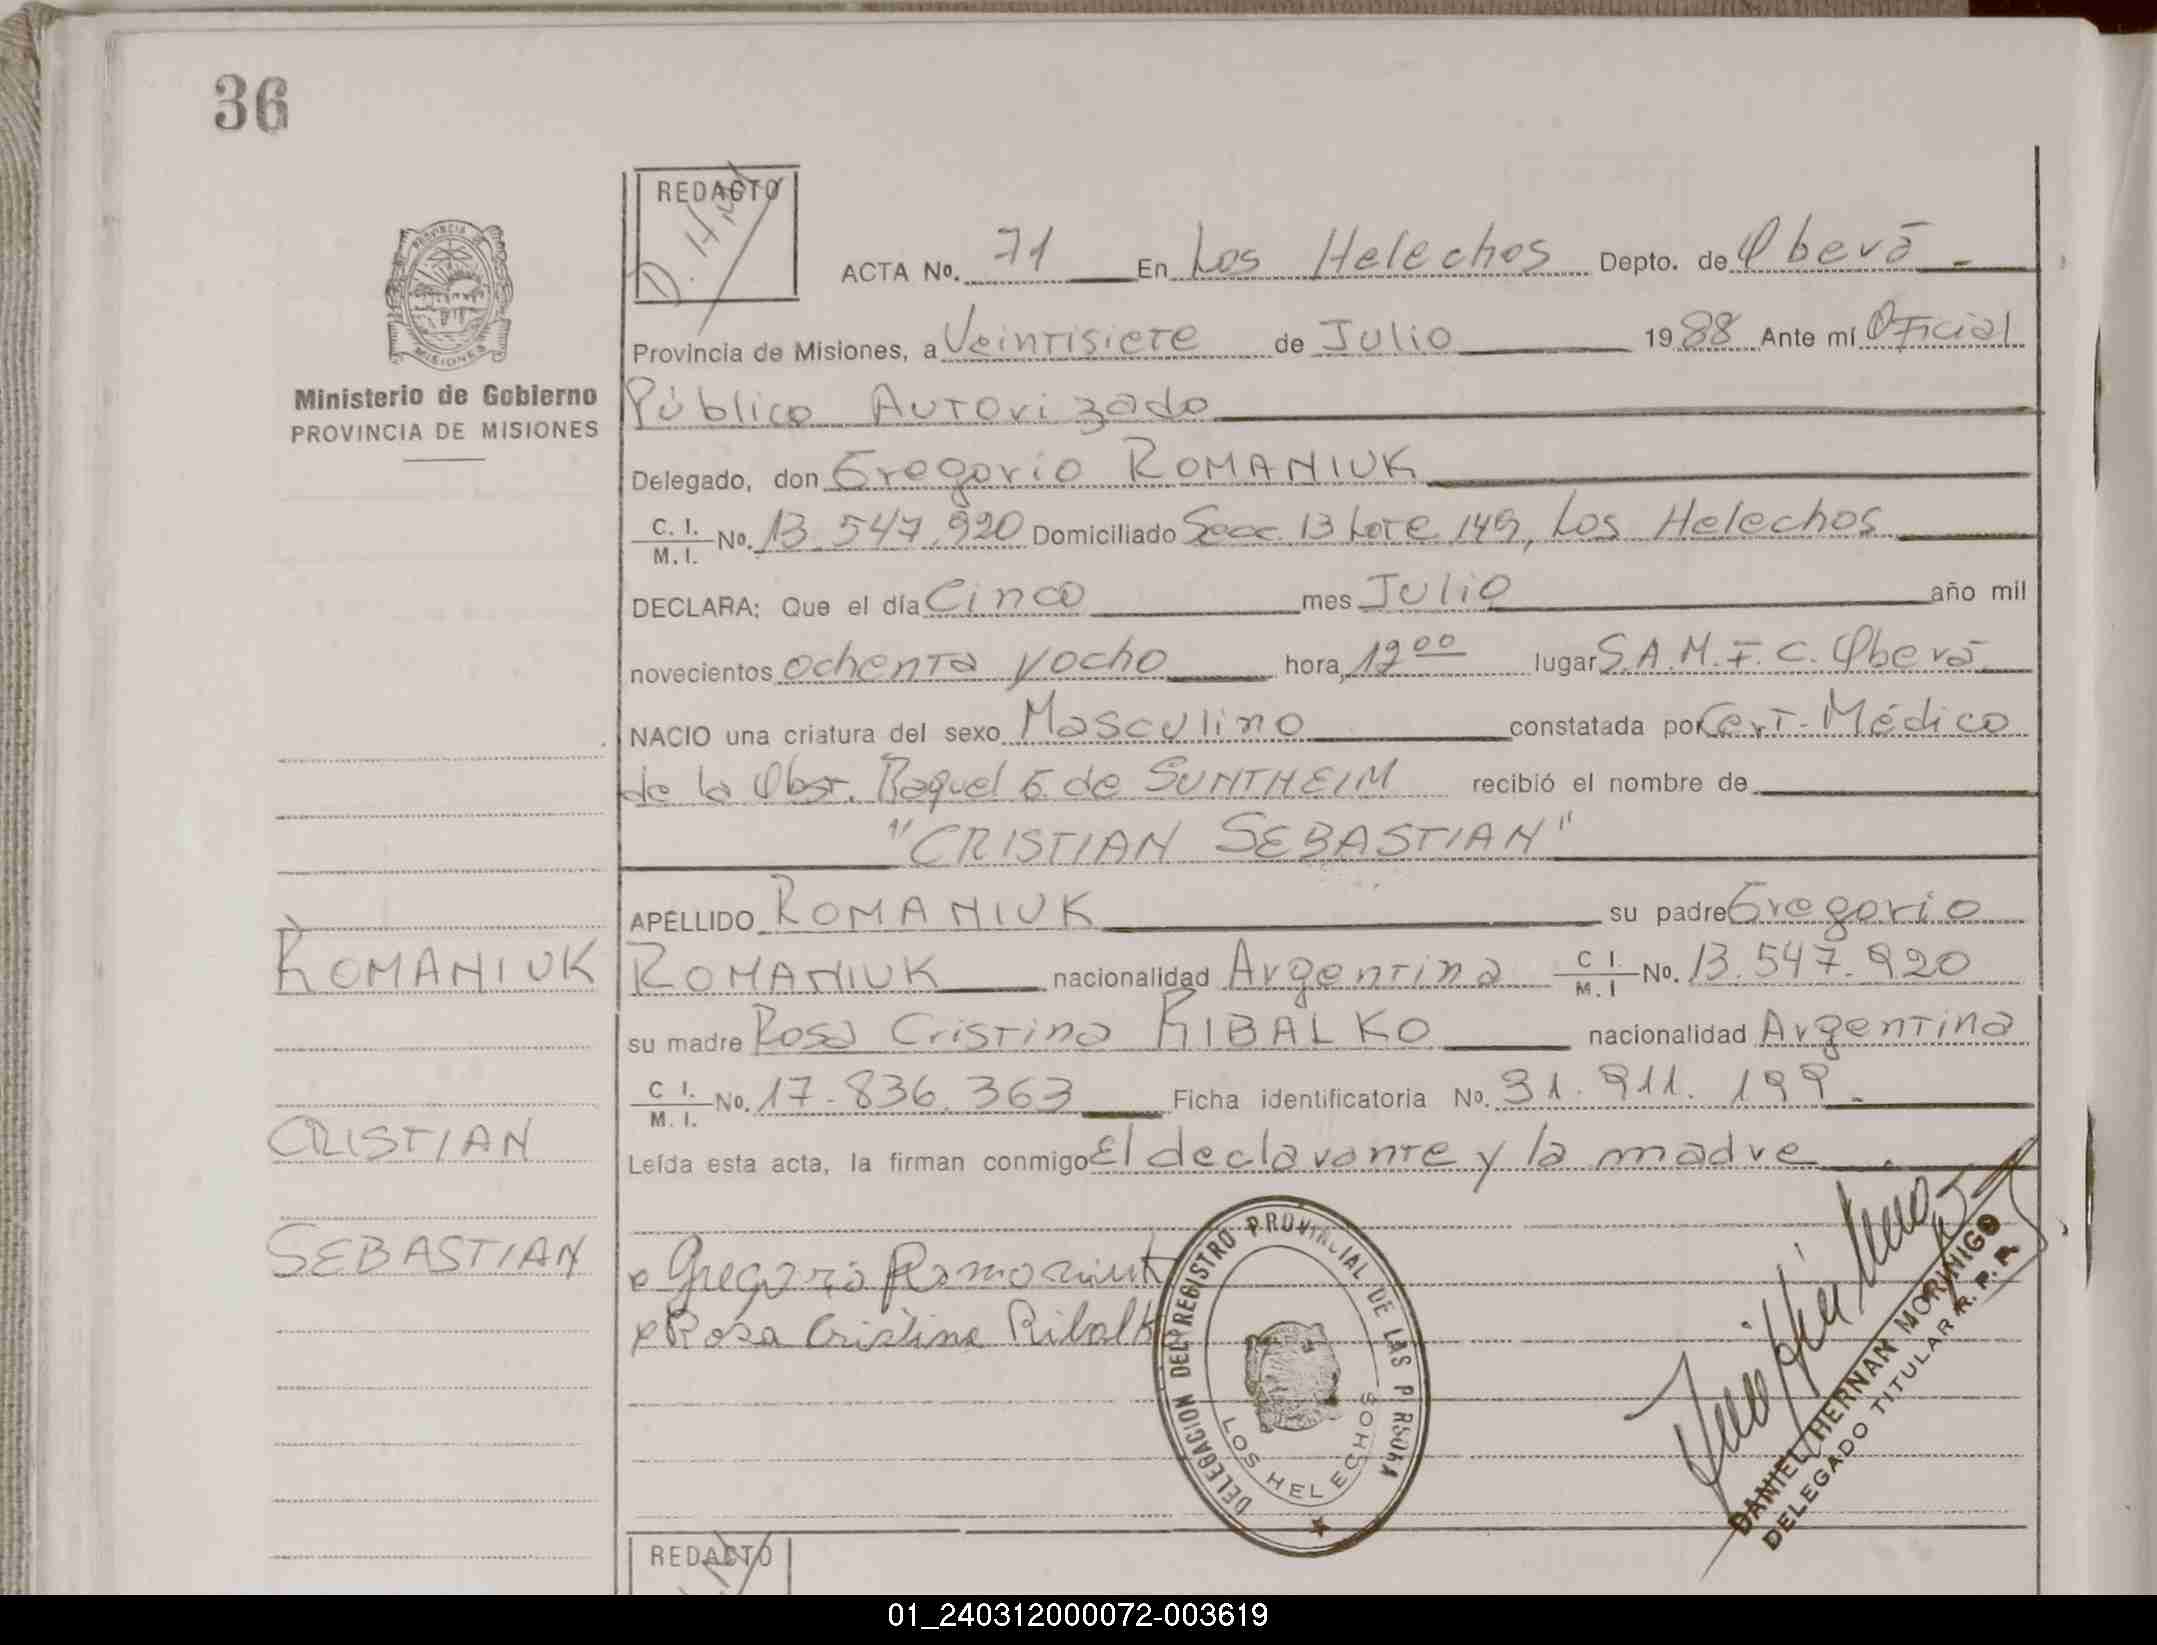 36
REDACTO
D. H. M
PROVINCIA DE
MISIONES
Ministerio de Gobierno
PROVINCIA DE MISIONES
ACTA No. 71 En Los Helechos Depto. de Oberá
Provincia de Misiones, a Veintisiete de Julio 1988 Ante mí Oficial
Público Autorizado
Delegado, don Gregorio ROMANIUK
C. I. / M. I. No. 13.547.920 Domiciliado Secc. 13 Lote 149, Los Helechos
DECLARA: Que el día Cinco mes Julio año mil
novecientos ochenta y ocho hora 12 00 lugar S.A.M.I.C. Oberá
NACIO una criatura del sexo Masculino constatada por Cert. Médico
de la Obst. Raquel G. de SUNTHEIM recibió el nombre de
"CRISTIAN SEBASTIAN"
APELLIDO ROMANIUK su padre Gregorio
ROMANIUK nacionalidad Argentina C I. / M. I No. 13.547.920
su madre Rosa Cristina RIBALKO nacionalidad Argentina
C I. / M. I. No. 17.836.363 Ficha identificatoria No. 31.911.199.
Leída esta acta, la firman conmigo El declarante y la madre
ROMANIUK
CRISTIAN
SEBASTIAN
Gregorio Romaniuk
Rosa Cristina Ribalk
DELEGACION DEL REGISTRO PROVINCIAL DE LAS PERSONA
LOS HELECHOS
DANIEL HERNAN MORINIGO
DELEGADO TITULAR R. P. P.
REDACTO
01_240312000072-003619